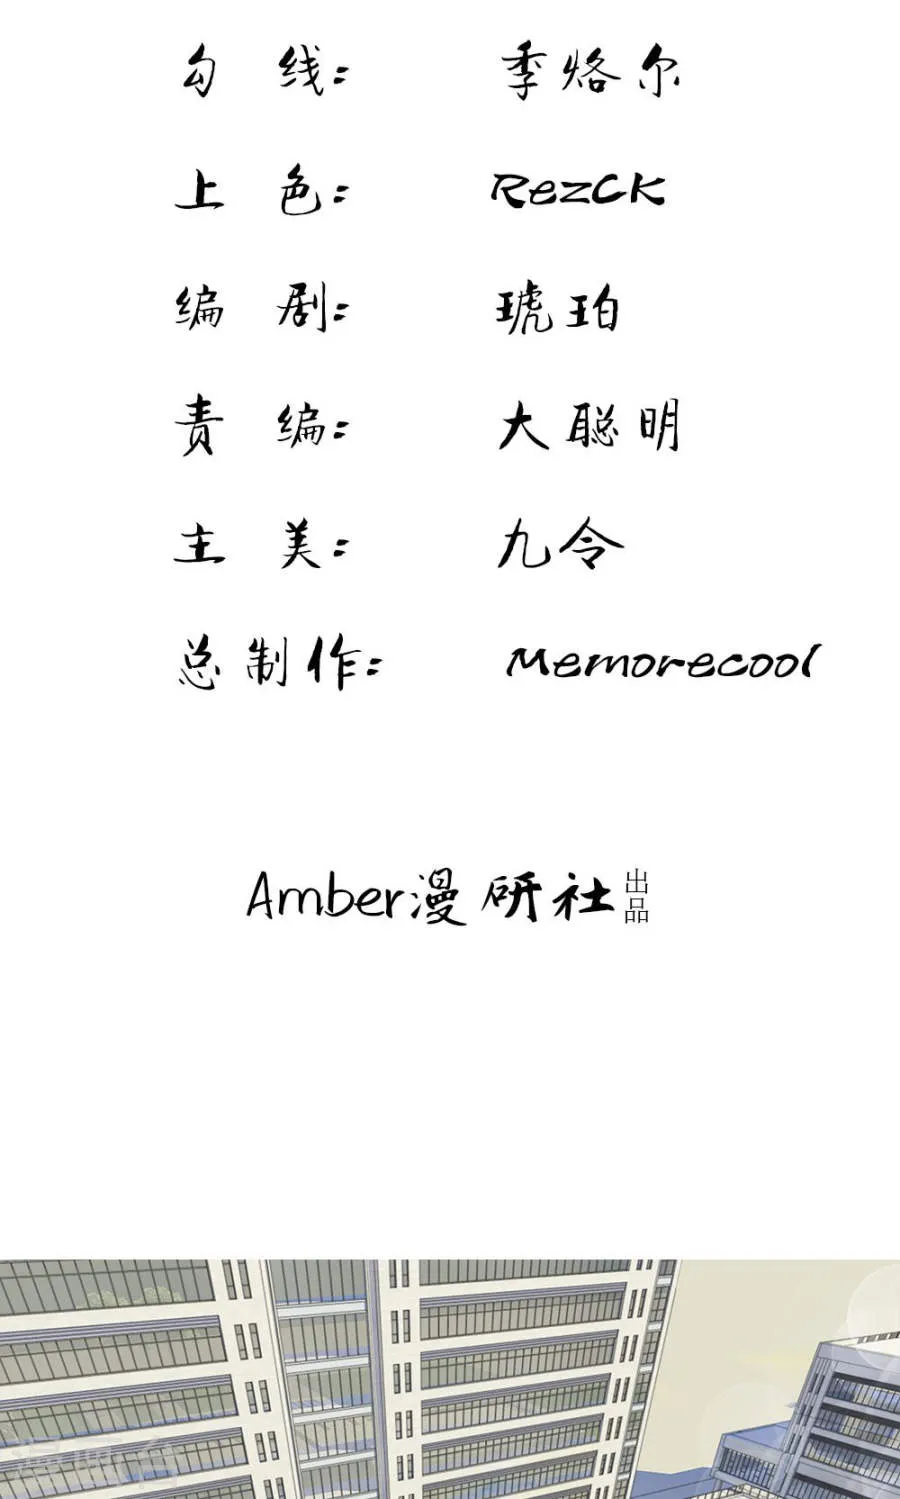 勾 线： 季烙尔
上 色： RezCK
编 剧： 琥珀
责 编： 大聪明
主 美： 九令
总制作： Memorecool
Amber漫研社出品